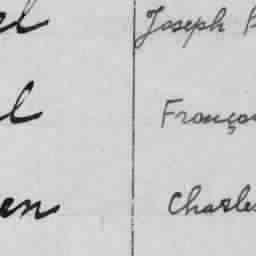 el Joseph
l Françoi
en Charles